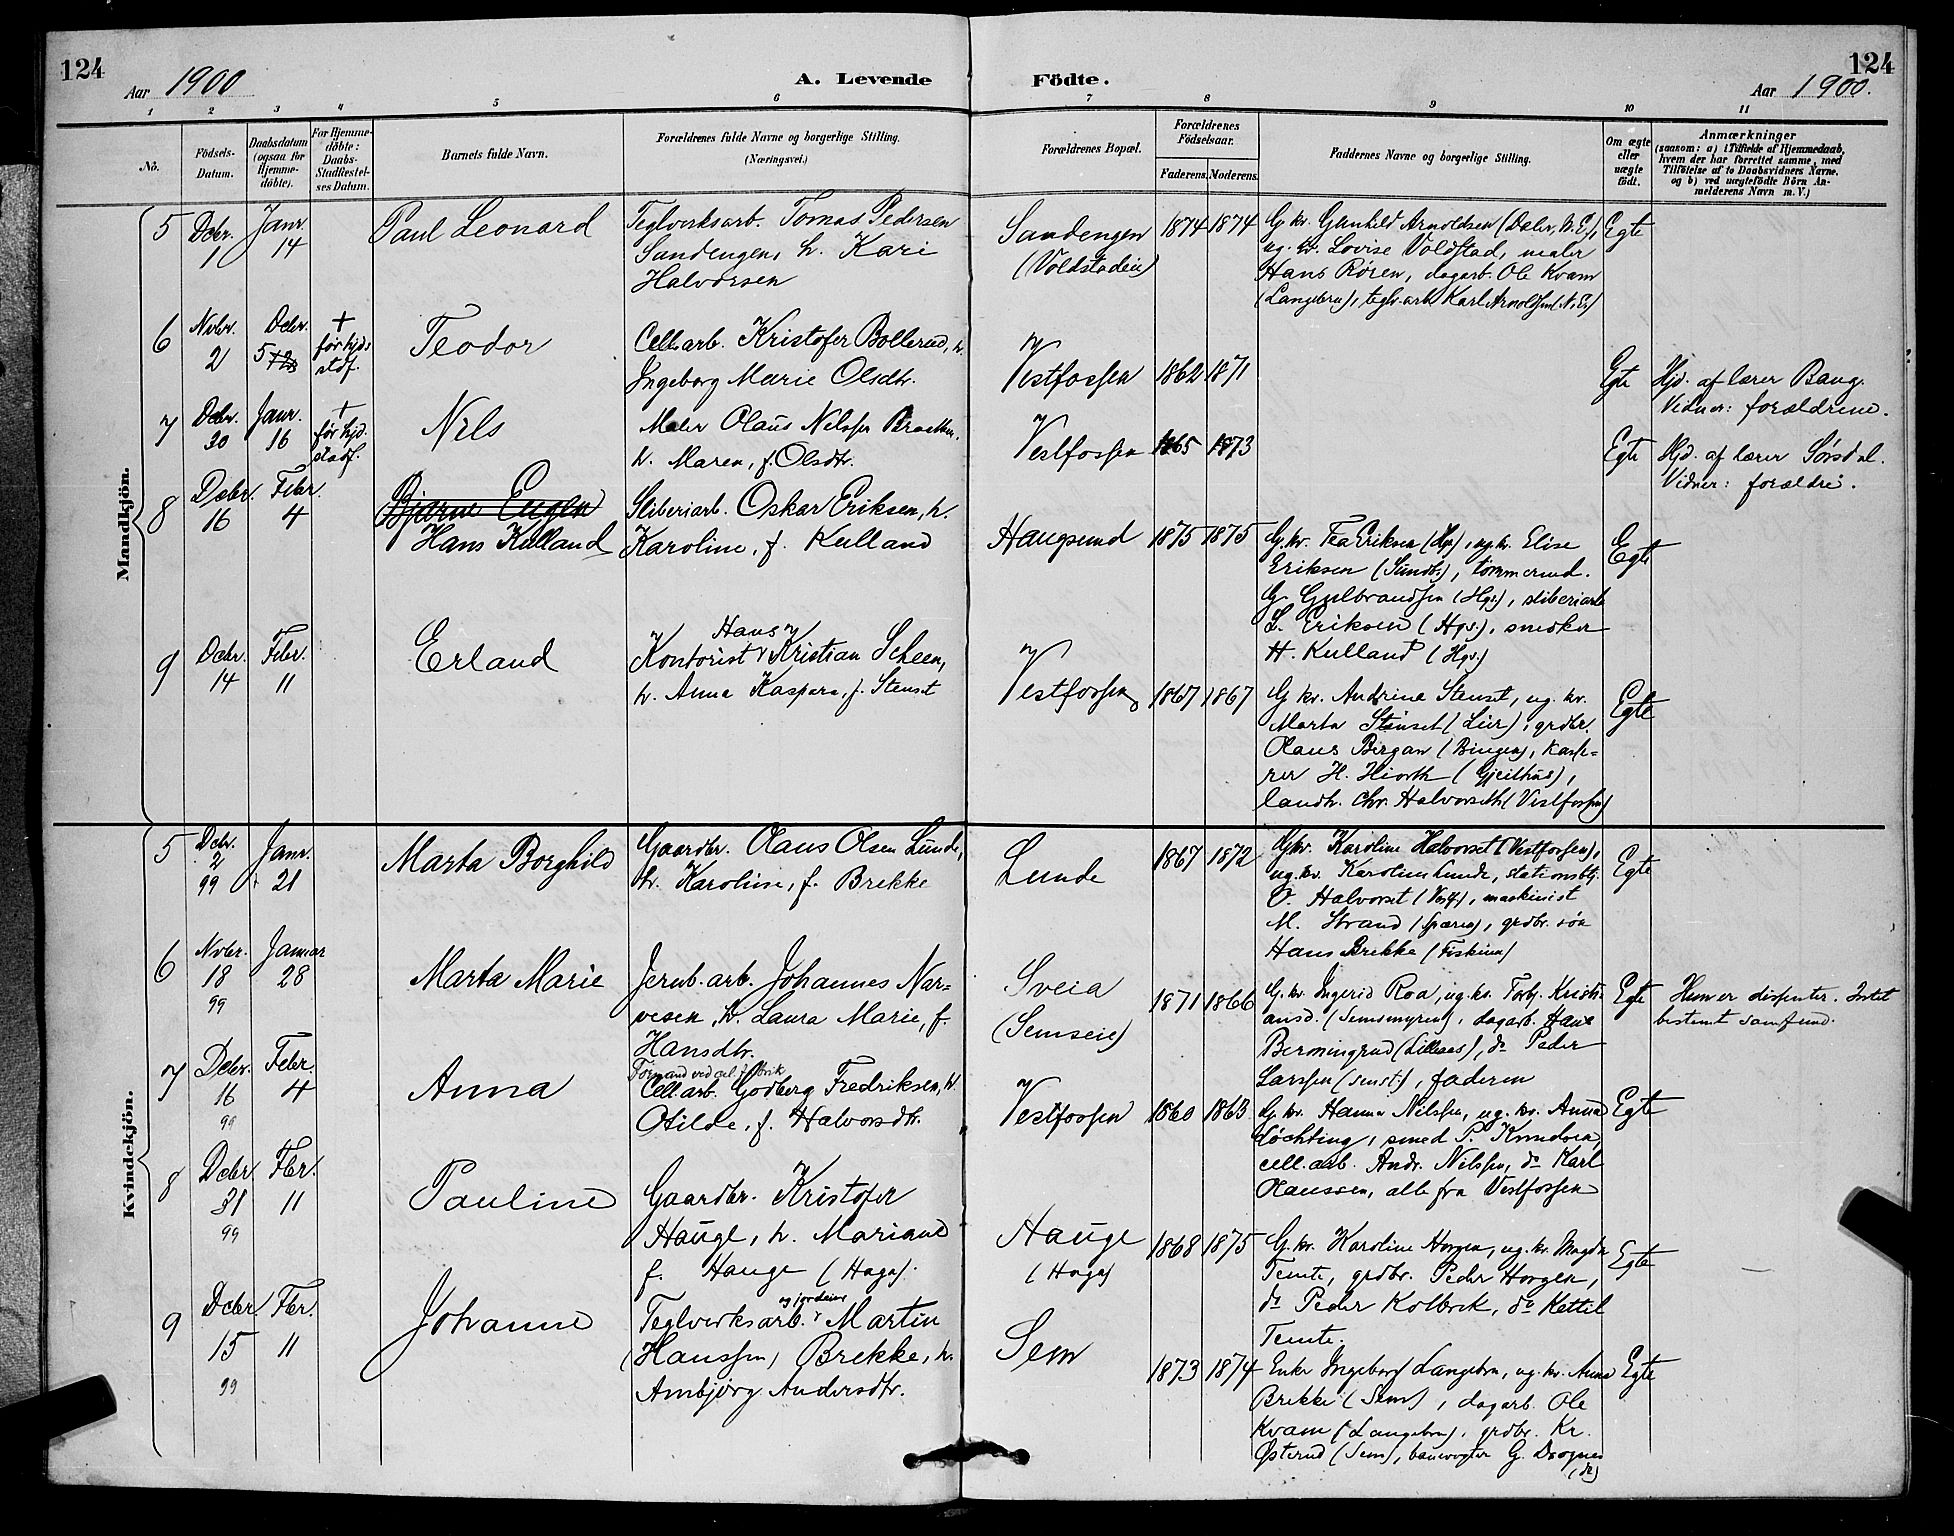 124
Aar 1900
A. Levende Födte.
Aar 1900.
124
1 2 3 4 5 6 7 8 9 10 11
No.
Födsels-Datum.
Daabsdatum (ogsaa for Hjemme-döbte).
For Hjemme-döbte: Daabs-Stadfæstel-ses Datum.
Barnets fulde Navn.
Forældrenes fulde Navne og borgerlige Stilling.
(Næringsvei.)
Forældrenes Bopæl.
Forældrenes Födselsaar.
Faderens. Moderens.
Faddernes Navne og borgerlige Stilling.
Om ægte eller uægte födt.
Anmærkninger
(saasom: a) i Tilfælde af Hjemmedaab, hvem der har forrettet samme, med Tilföielse af to Daabsvidners Navne, og b) ved uægtefödte Börn An-melderens Navn m. V.)
Mandkjön.
5 Dcbr. 1 Janr. 14 Paul Leonard
Teglverksarb. Tomas Pedersen
Sandengen, h. Kari
Halvorsen
Sandengen
(Voldstadeie)
1874 1874
G. kv. Gunhild Arnoldsen (Døler, N.E.),
ug. kv. Lovise Voldstad, maler
Hans Røren, dagarb. Ole Kvam
(Langebru), teglv.arb. Karl Arnoldsen (N.E.)
Egte
6 Nvbr. 2 Dcbr. 5 + før hjds stdf.
Teodor
Cell.arb. Kristofer Bollerud, h.
Ingeborg Marie Olsdtr.
Vestfossen 1862 1871
Egte
Hjd. af lærer Bang.
Vidner: forældrene.
7 Dcbr. 30 Janr. 16 + før hjd. stadf.
Nels
Maler Olaus Nilssen Braathen,
h. Maren, f. Olsdtr.
Vestfossen 1865 1873
Egte
Hjd. af lærer Sørsdal.
Vidner: forældre.
8 Dcbr. 16 Febr. 4
Bjarne Eugen
Hans Kulland
Sliberiarb. Oskar Eriksen, h.
Karoline, f. Kulland
Haugsund 1875 1875
G. kv. Tea Eriksen (Hgs), ug. kv. Elise
Eriksen (Sundb.), tømmermd.
G. Gulbrandsen (Hgs.), sliberiarb
L. Eriksen (Hgs.), snedker
H. Kulland (Hgs.)
Egte
9 Dcbr. 14 Febr. 11
Erland
Hans
Kontorist Kristian Scheen,
h. Anna Kaspara, f. Stenset
Vestfossen 1867 1867
G. kv. Andrine Stenset, ug. kv.
Marta Stenset (Lier), grdbr.
Olaus Birgan (Bingen), kasse-
rer H. Hiorth (Gjeithus),
landh. Chr. Halvorseth (Vestfossen)
Egte
Kvindekjön.
5 Dcbr. 2 99 Janr. 21
Marta Borghild
Gaardbr. Olaus Olsen Lunde,
h. Karoline, f. Brekke
Lunde 1867 1872
G. kv. Karoline Halvorset (Vestfossen),
ug. kv. Karoline Lunde, stationsbtj.
O. Halvorset (Vestf.), maskinist
M. Strand (), grdbr. søn
Hans Brekke (Fiskum)
Egte
6 Nvbr. 18 99 Januar 28
Marta Marie
Jernb.arb. Johannes Nar-
vesen, h. Laura Marie, f.
Hansdtr.
Sveia
(Semseie)
1871 1866
G. kv. Ingerid Roa, ug. kv. Torbj. Kristi-
ansd. (Semsmyren), dagarb. Hans
Bermingrud (Lilleaas), do Peder
Larssen (Semst.), faderen
Egte
Hun er dissenter. Intet
bestemt samfund.
7 Dcbr. 16 99 Febr. 4
Anna
Formand ved cel. fabrik
Cell.arb. Godberg Fredriksen, h.
Otilde, f. Halvorsdtr.
Vestfossen 1860 1863
G. kv. Hanna Nilssen, ug. kv. Anna
Løchting, smed P. Knudsen,
cell.arb. Andr. Nilssen, do Karl
Olaussen, alle fra Vestfossen
Egte
8 Dcbr. 31 99 Fbr. 11
Pauline
Gaardbr. Kristofer
Hauge, h. Mariane
f. Hauge (Haga).
Hauge
(Haga)
1868 1875
G. kv. Karoline Horgen, ug. kv. Magda
Temte, grdbr. Peder Horgen,
do Peder Kolbrek, do Kettil
Temte.
Egte
9 Dcbr 15 99 Fbr. 11
Johanne
og jordeier
Teglverksarb. Martin
(Hanssen) Brekke, h.
Ambjørg Andersdtr.
Sem 1873 1874
Enke Ingeborg Langebru, ug. kv. Anna
Brekke (Sem), dagarb. Ole
Kvam (Langebru), grdbr. Kr.
Østerud (Sem), banevogter G. Drognes
(do)
Egte